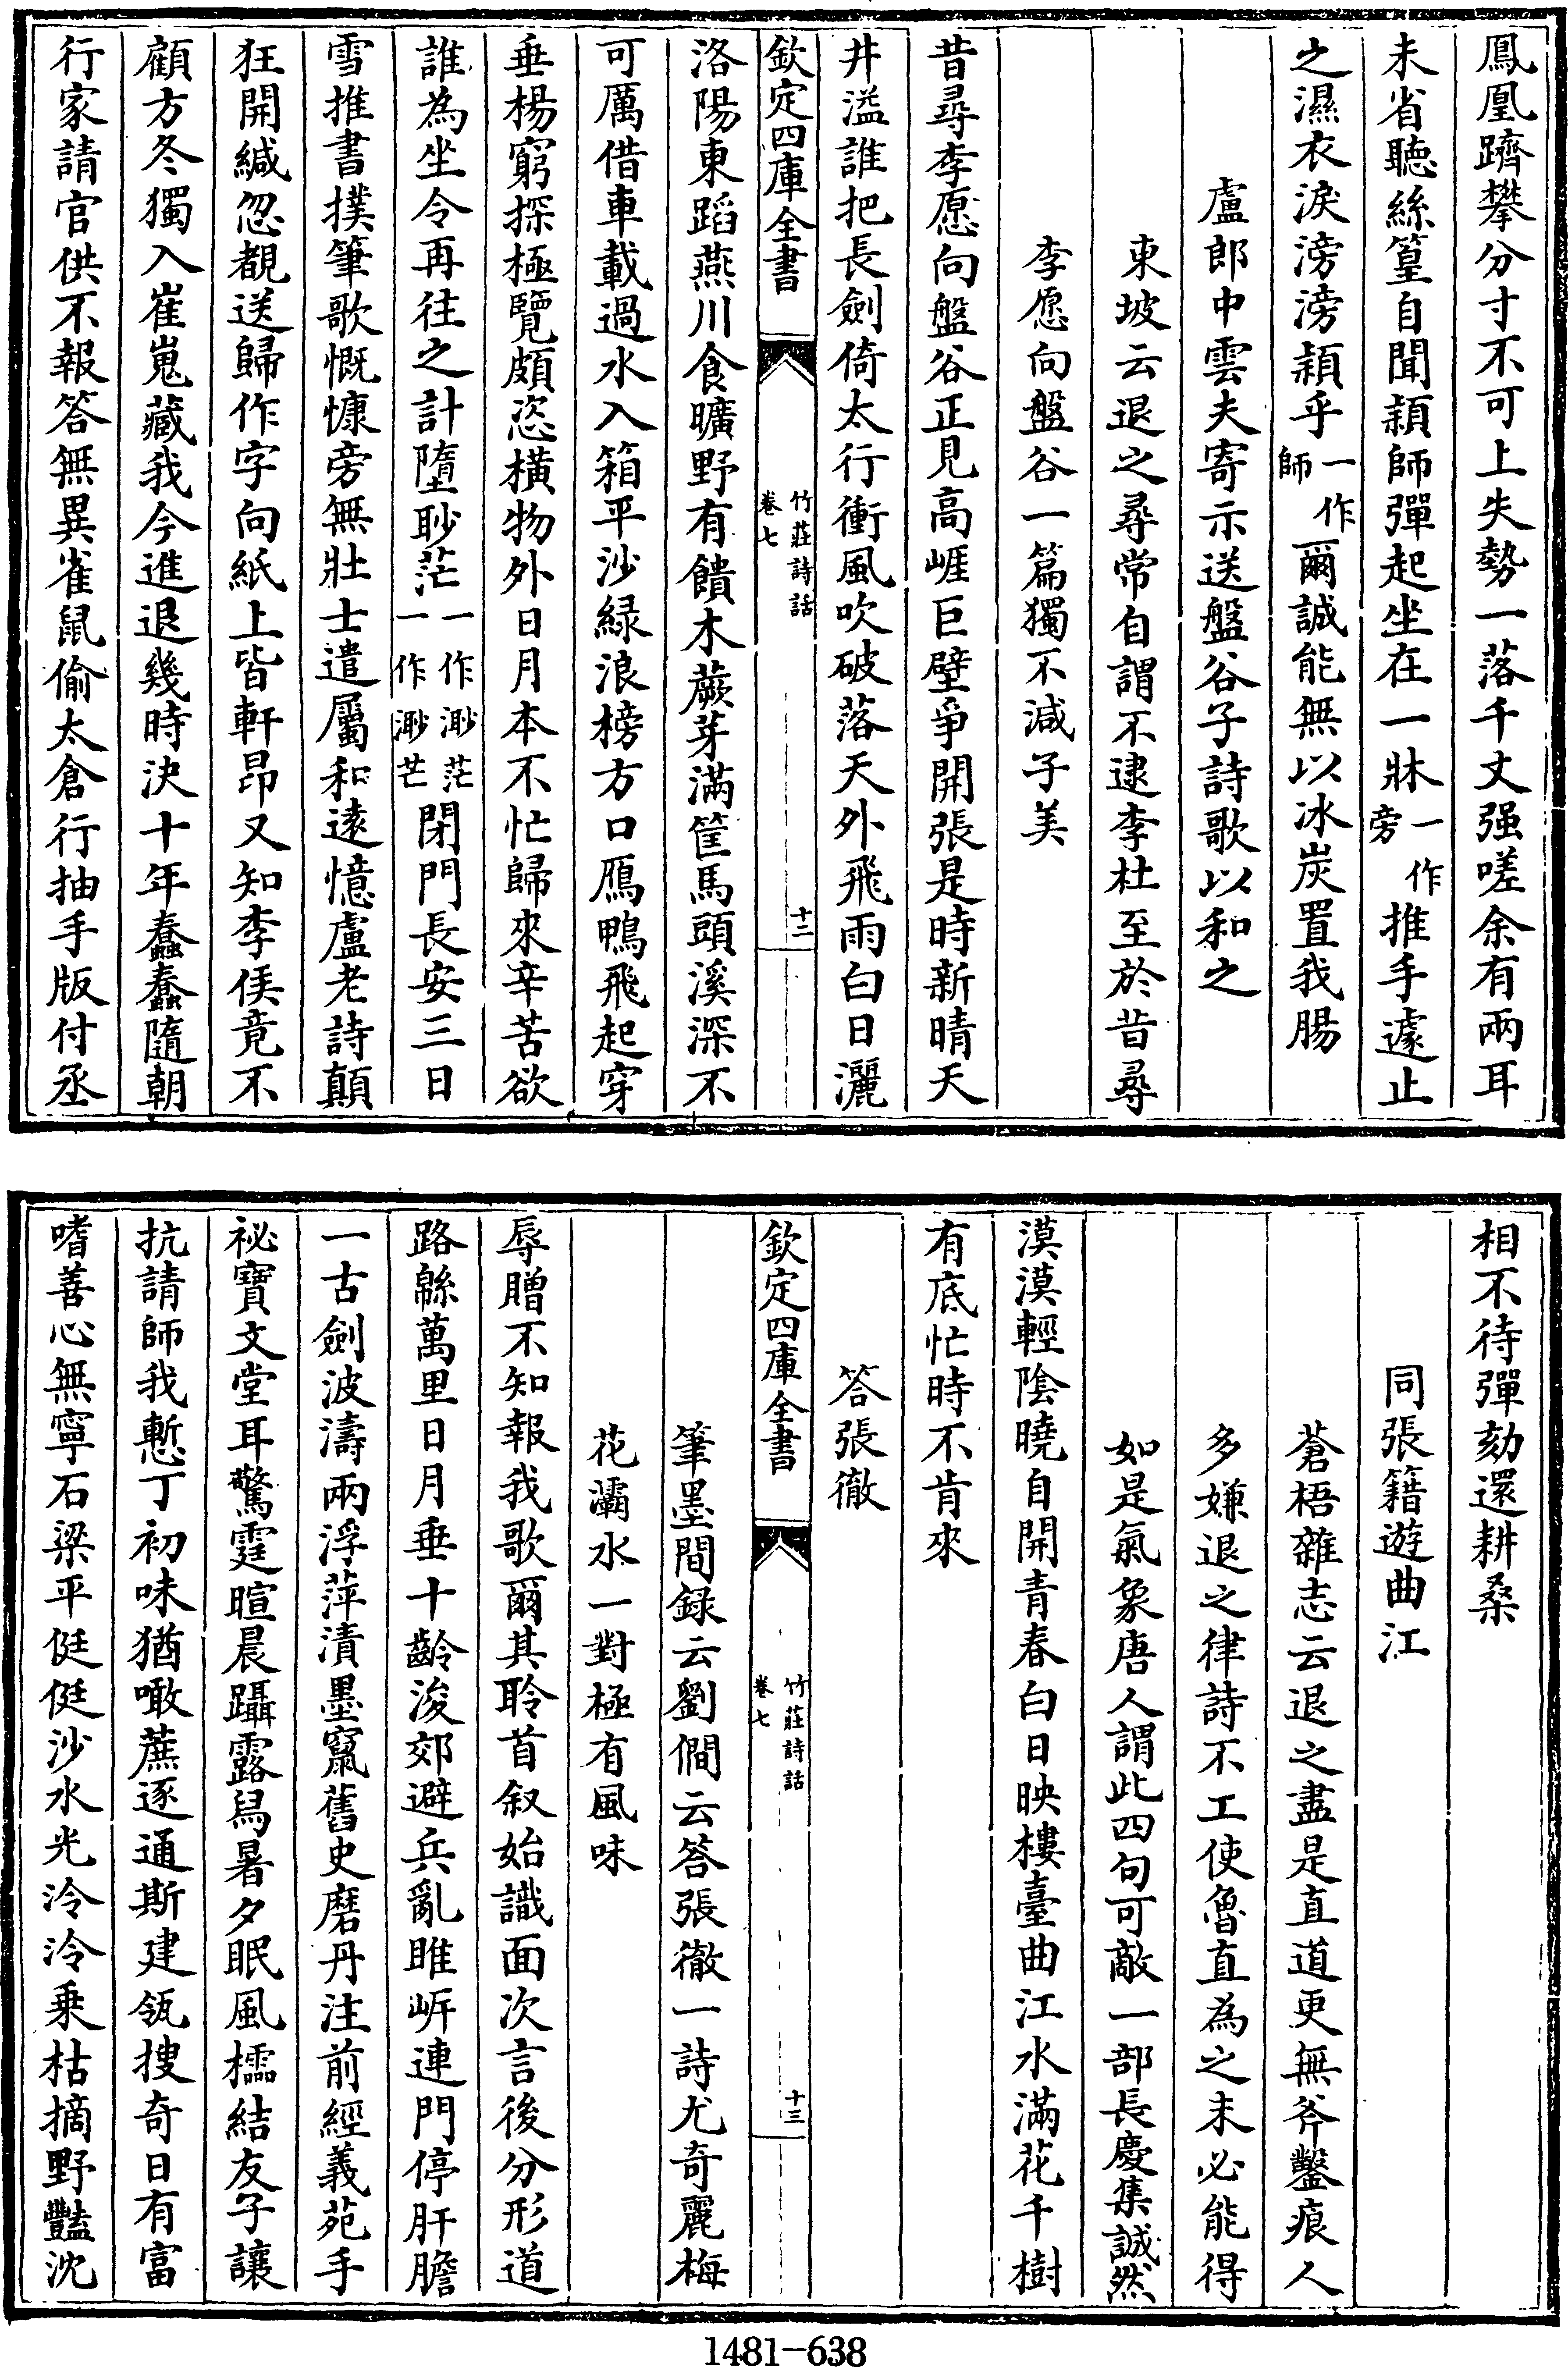 鳳凰躋攀分寸不可上失勢一落千丈强嗟余有兩耳
未省聽絲篁自聞頴師彈起坐在一牀一作旁推手遽止
之濕衣淚滂滂頴乎一作師爾誠能無以冰炭置我腸
盧郎中雲夫寄示送盤谷子詩歌以和之
東坡云退之尋常自謂不逮李杜至於昔尋
李愿向盤谷一篇獨不減子美
昔尋李愿向盤谷正見高崕巨壁爭開張是時新晴天
井溢誰把長劍倚太行衝風吹破落天外飛雨白日灑
欽定四庫全書 竹莊詩話 卷七 十二
洛陽東蹈燕川食曠野有饋木蕨芽滿筐馬頭溪深不
可厲借車載過水入箱平沙緑浪榜方口鴈鴨飛起穿
垂楊窮探極覽頗恣橫物外日月本不忙歸來辛苦欲
誰為坐令再往之計墮眇茫一作渺茫一作渺芒閉門長安三日
雪推書撲筆歌慨慷旁無壯士遣屬和逺憶盧老詩顛
狂開緘忽覩送歸作字向紙上皆軒昂又知李侯竟不
顧方冬獨入崔嵬藏我今進退幾時決十年蠢蠢隨朝
行家請官供不報答無異雀鼠偷太倉行抽手版付丞
相不待彈劾還耕桑
同張籍遊曲江
蒼梧雜志云退之盡是直道更無斧鑿痕人
多嫌退之律詩不工使魯直為之未必能得
如是氣象唐人謂此四句可敵一部長慶集誠然
漠漠輕陰曉自開青春白日映樓臺曲江水滿花千樹
有底忙時不肯來
答張徹
欽定四庫全書 竹莊詩話 卷七 十三
筆墨間録云劉僩云答張徹一詩尤奇麗梅
花灞水一對極有風味
辱贈不知報我歌爾其聆首叙始識面次言後分形道
路緜萬里日月垂十齡浚郊避兵亂睢岍連門停肝膽
一古劍波濤兩浮萍漬墨竄舊史磨丹注前經義苑手
祕寶文堂耳驚霆暄晨躡露舄暑夕眠風櫺結友子讓
抗請師我慙丁初味猶噉蔗逐通斯建瓴搜奇日有富
嗜善心無寧石梁平侹侹沙水光泠泠乗枯摘野豔沈
1481-638